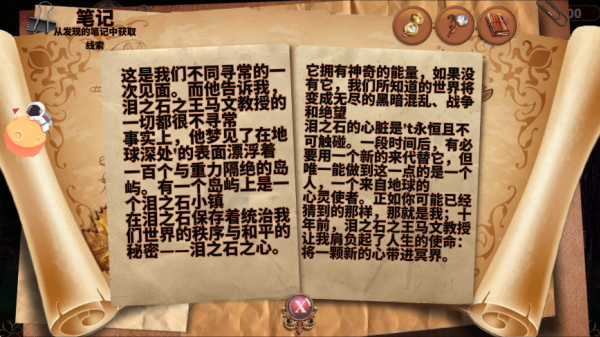 笔记
从发现的笔记中获取
线索
00
这是我们不同寻常的一
次见面。而他告诉我，
泪之石之王马文教授的
一切都很不寻常
事实上，他梦见了在地
球深处'的表面漂浮着
一百个与重力隔绝的岛
屿。有一个岛屿上是一
个泪之石小镇
在泪之石保存着统治我
们世界的秩序与和平的
秘密——泪之石之心。
它拥有神奇的能量，如果没
有它，我们所知道的世界将
变成无尽的黑暗混乱、战争
和绝望
泪之石的心脏是't永恒且不
可触碰。一段时间后，有必
要用一个新的来代替它，但
唯一能做到这一点的是一个
人，一个来自地球的
心灵使者。正如你可能已经
猜到的那样，那就是我；十
年前，泪之石之王马文教授
让我肩负起了人生的使命：
将一颗新的心带进冥界。
X